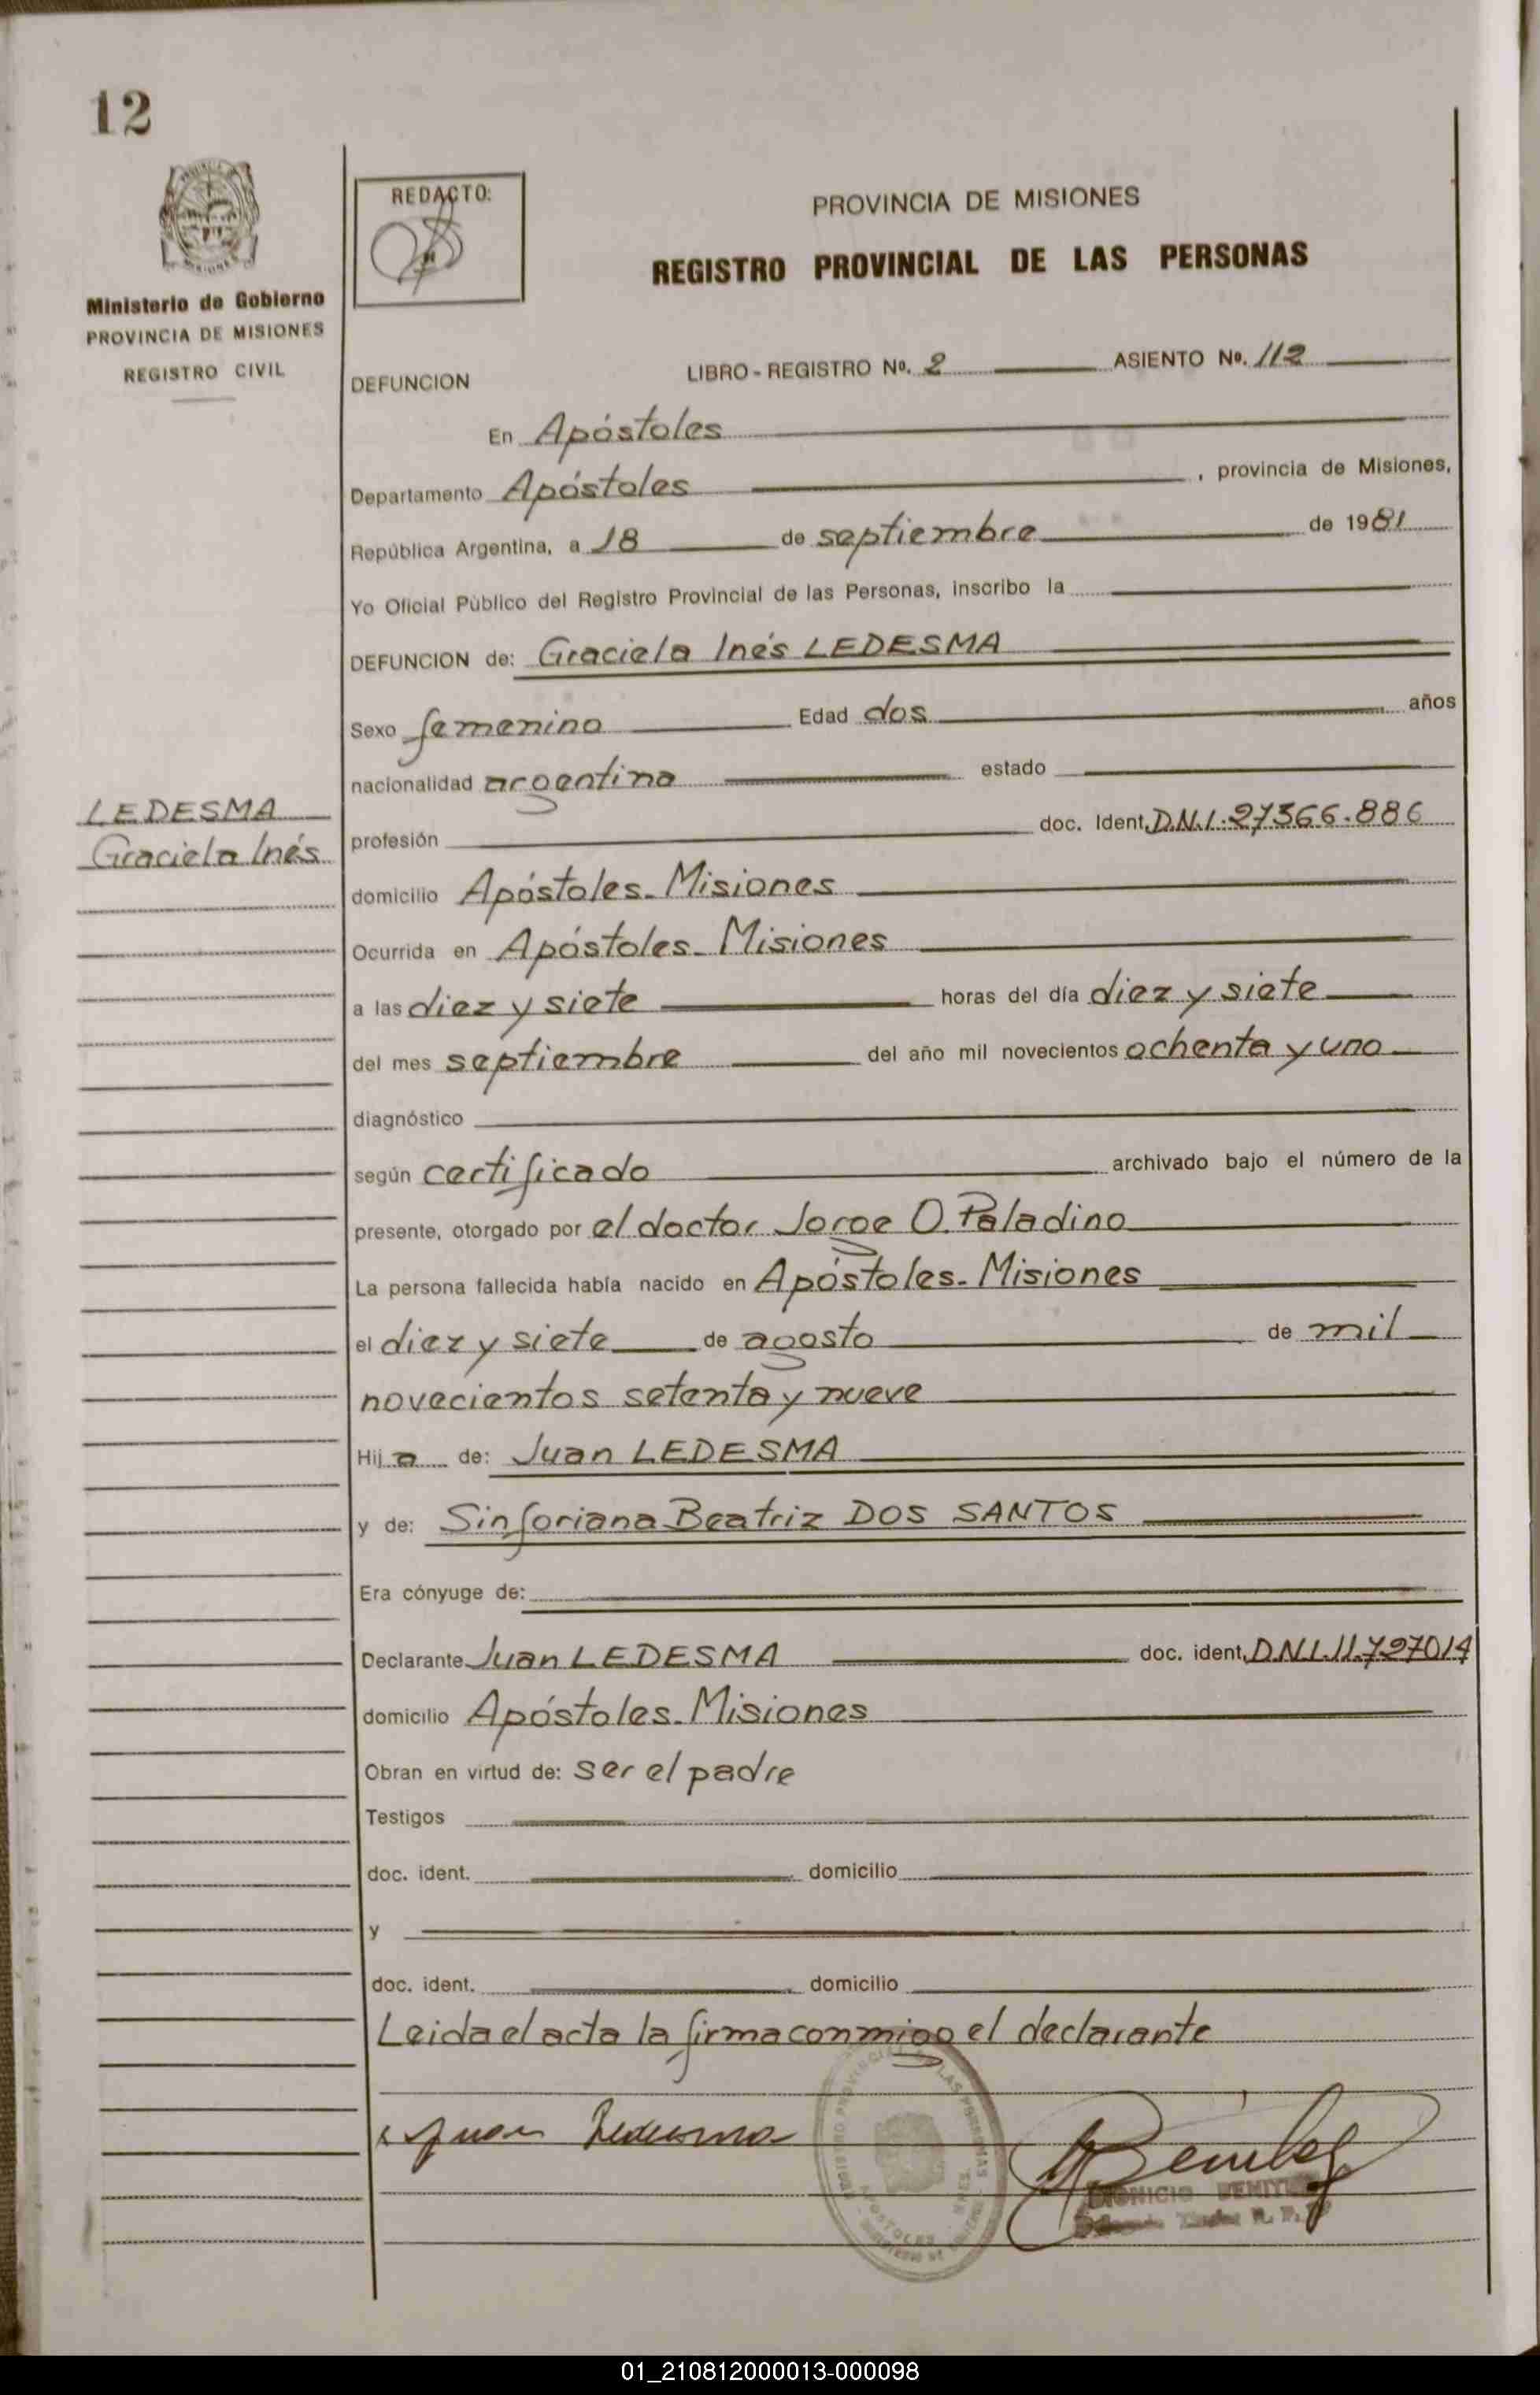 12
REDACTO:
Ministerio de Gobierno
PROVINCIA DE MISIONES
REGISTRO CIVIL
PROVINCIA DE MISIONES
REGISTRO PROVINCIAL DE LAS PERSONAS
DEFUNCION LIBRO-REGISTRO Nº. 2 ASIENTO Nº. 112
En Apóstoles
Departamento Apóstoles, provincia de Misiones,
República Argentina, a 18 de septiembre de 1981
Yo Oficial Público del Registro Provincial de las Personas, inscribo la
DEFUNCION de: Graciela Inés LEDESMA
Sexo femenino Edad dos años
nacionalidad argentina estado
LEDESMA
Graciela Inés
profesión doc. Ident. D.N.I. 27366.886
domicilio Apóstoles-Misiones
Ocurrida en Apóstoles-Misiones
a las diez y siete horas del día diez y siete
del mes septiembre del año mil novecientos ochenta y uno
diagnóstico
según certificado archivado bajo el número de la
presente, otorgado por el doctor Jorge O. Paladino
La persona fallecida había nacido en Apóstoles-Misiones
el diez y siete de agosto de mil
novecientos setenta y nueve
Hija de: Juan LEDESMA
y de: Sinforiana Beatriz DOS SANTOS
Era cónyuge de:
Declarante Juan LEDESMA doc. ident. D.N.I. 11.727014
domicilio Apóstoles-Misiones
Obran en virtud de: ser el padre
Testigos
doc. ident. domicilio
y
doc. ident. domicilio
Leida el acta la firma conmigo el declarante
Juan Ledesma
01_210812000013-000098